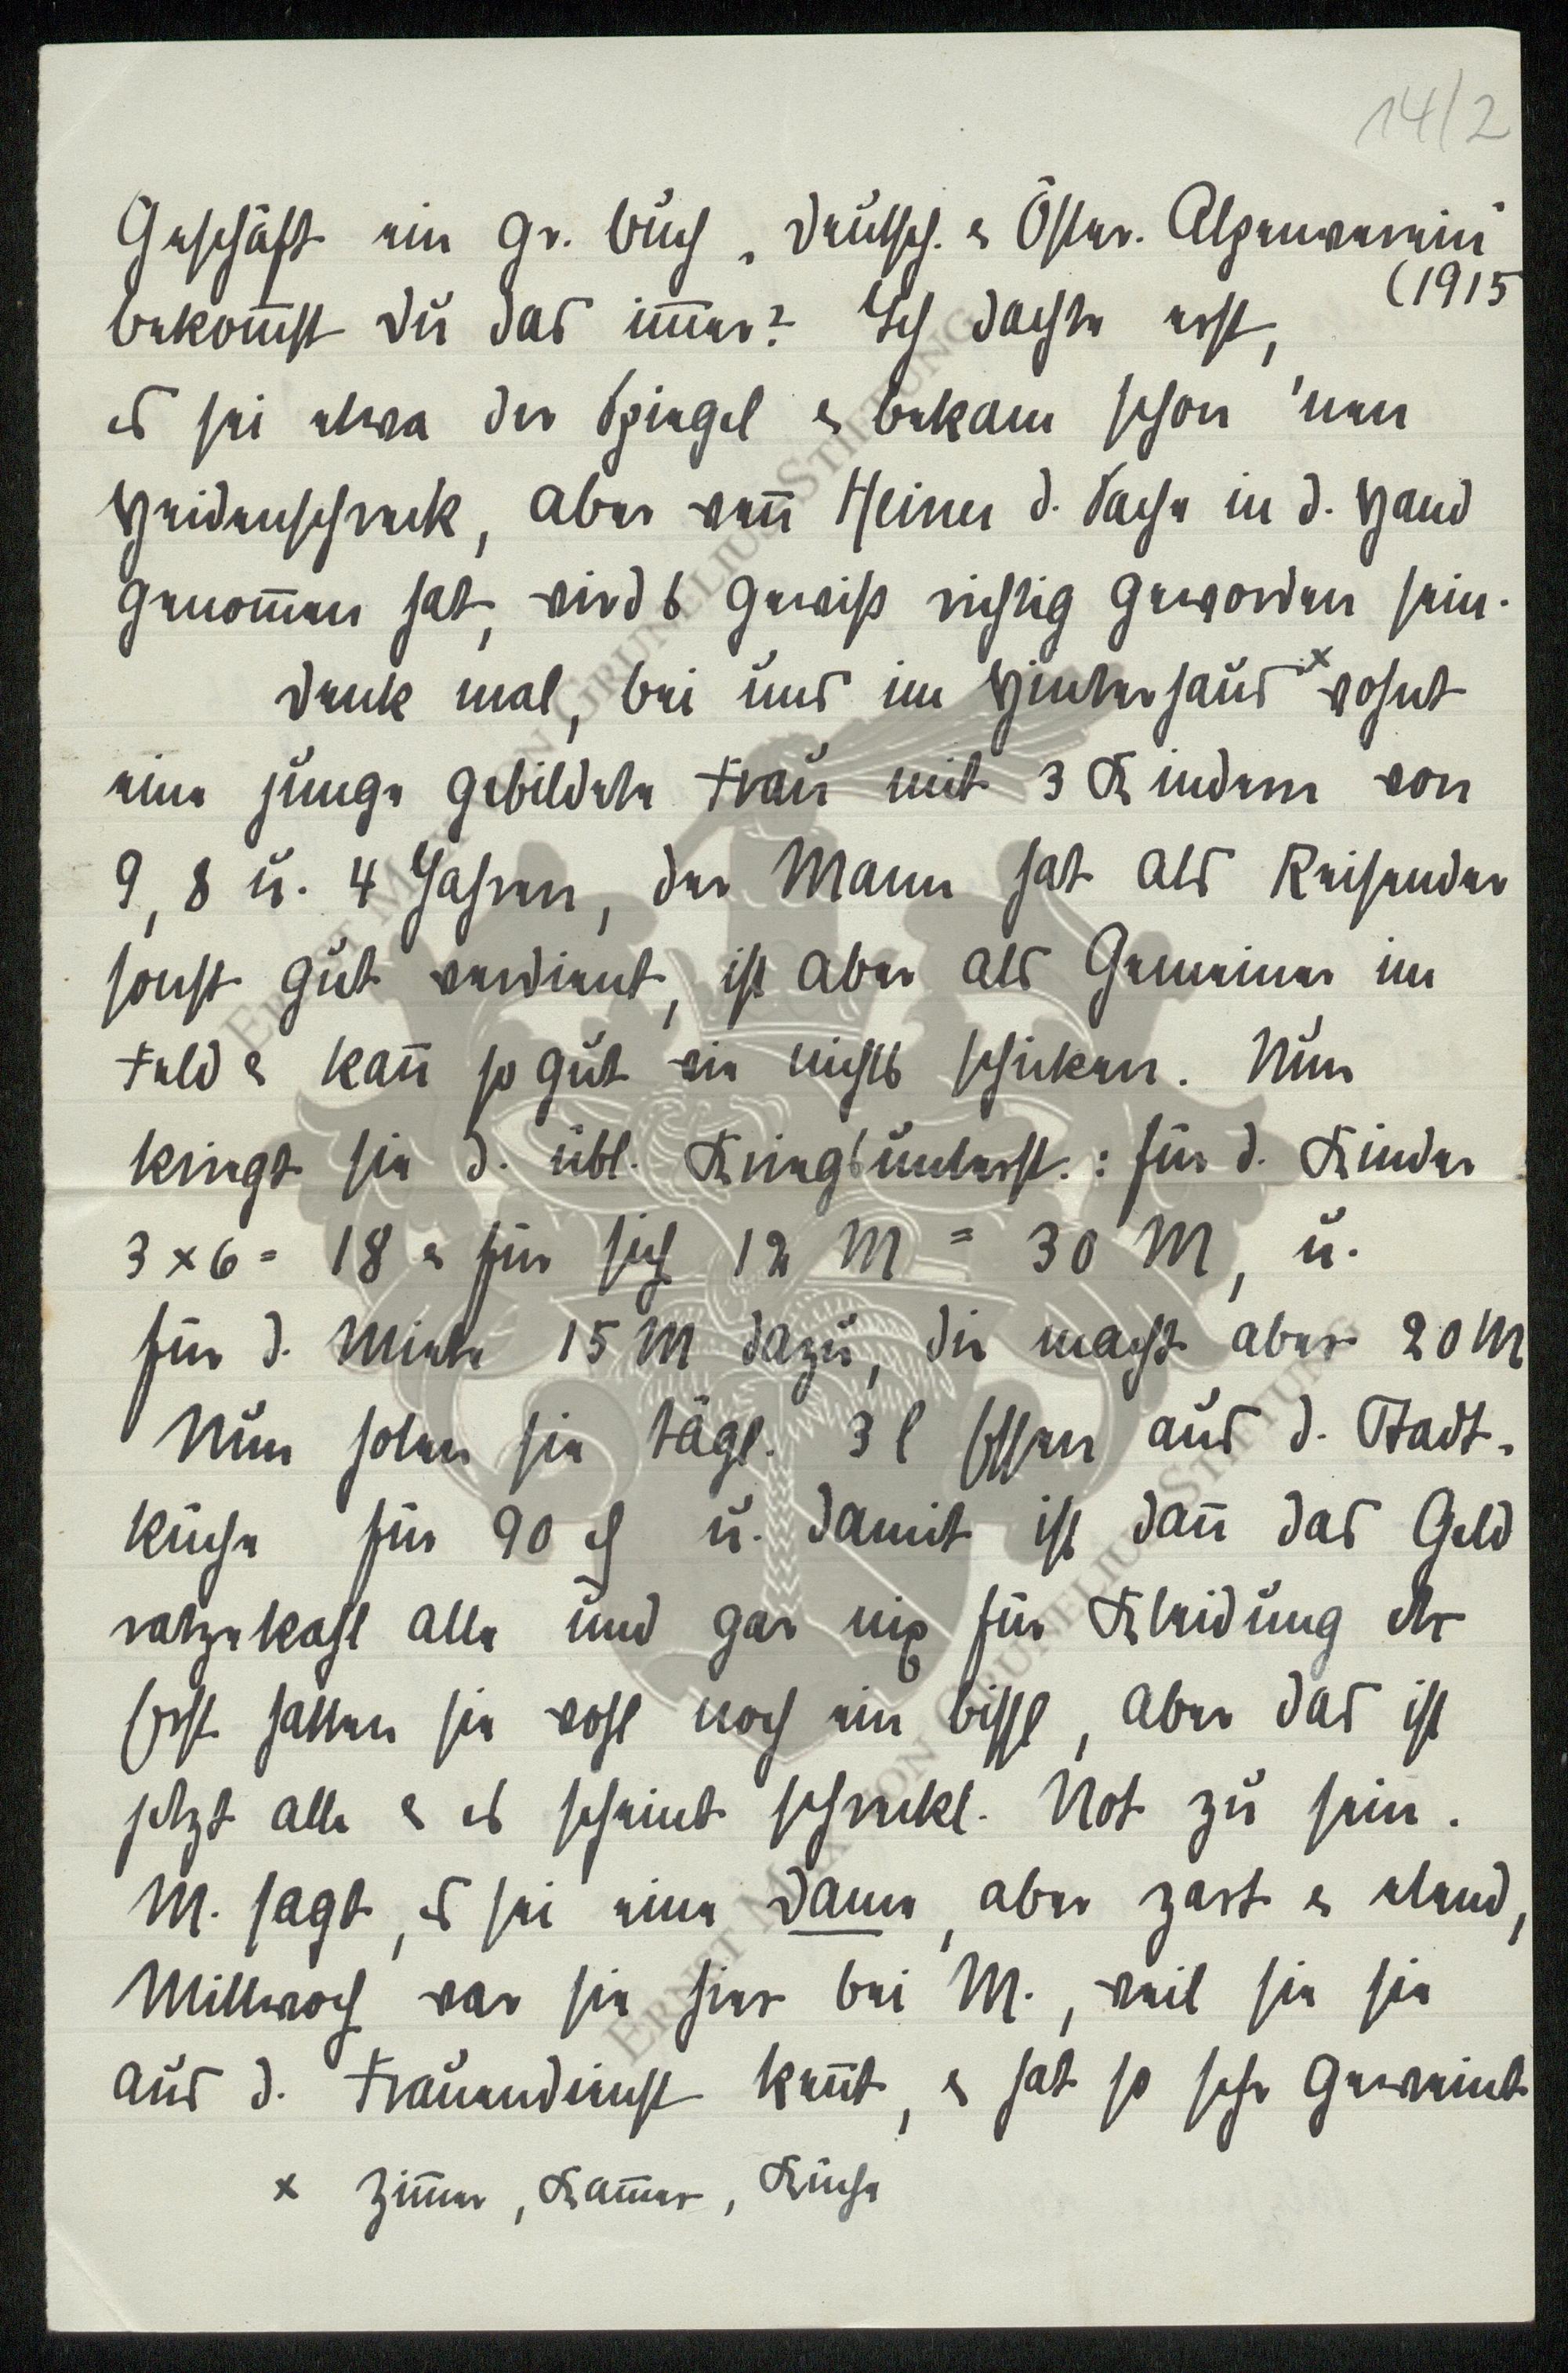 14/2
Geschäft ein gr. Buch „Deutsch. & Öster. Alpenverein"
(1915
bekom̄st Du das im̄er? Ich dachte erst,
es sei etwa der Spiegel & bekam schon 'nen
Heidenschreck, aber wen̄ Heiner d. Sache in d. Hand
genom̄en hat, wirds gewiß richtig geworden sein.
Denk mal, bei uns im Hinterhaus x wohnt
eine junge gebildete Frau mit 3 Kindern von
9, 8 u. 4 Jahren, der Mann hat als Reisender
sonst gut verdient, ist aber als Gemeiner im
Feld & kan̄ so gut wie nichts schicken. Nun
kriegt sie d. übl. Kriegsunterst.: für d. Kinder
3 x 6 = 18 & für sich 12 M = 30 M, u.
für d. Miete 15 M dazu, die macht aber 20 M
Nun holen sie tägl. 3 l Essen aus d. Stadt-
küche für 90 ₰ u. damit ist dan̄ das Geld
ratzekahl alle und gar nix für Kleidung etc
Erst hatten sie wohl noch ein bissl, aber das ist
jetzt alle & es scheint schreckl. Not zu sein.
M. sagt, es sei eine Dame, aber zart & elend,
Mittwoch war sie hier bei M., weil sie sie
aus d. Frauendienst ken̄t, & hat so sehr geweint
x Zim̄er, Kam̄er, Küche
ERNET MAXTON GRUNELIUS STIFTUNG
ERNET MAXTON GRUNELIUS STIFTUNG